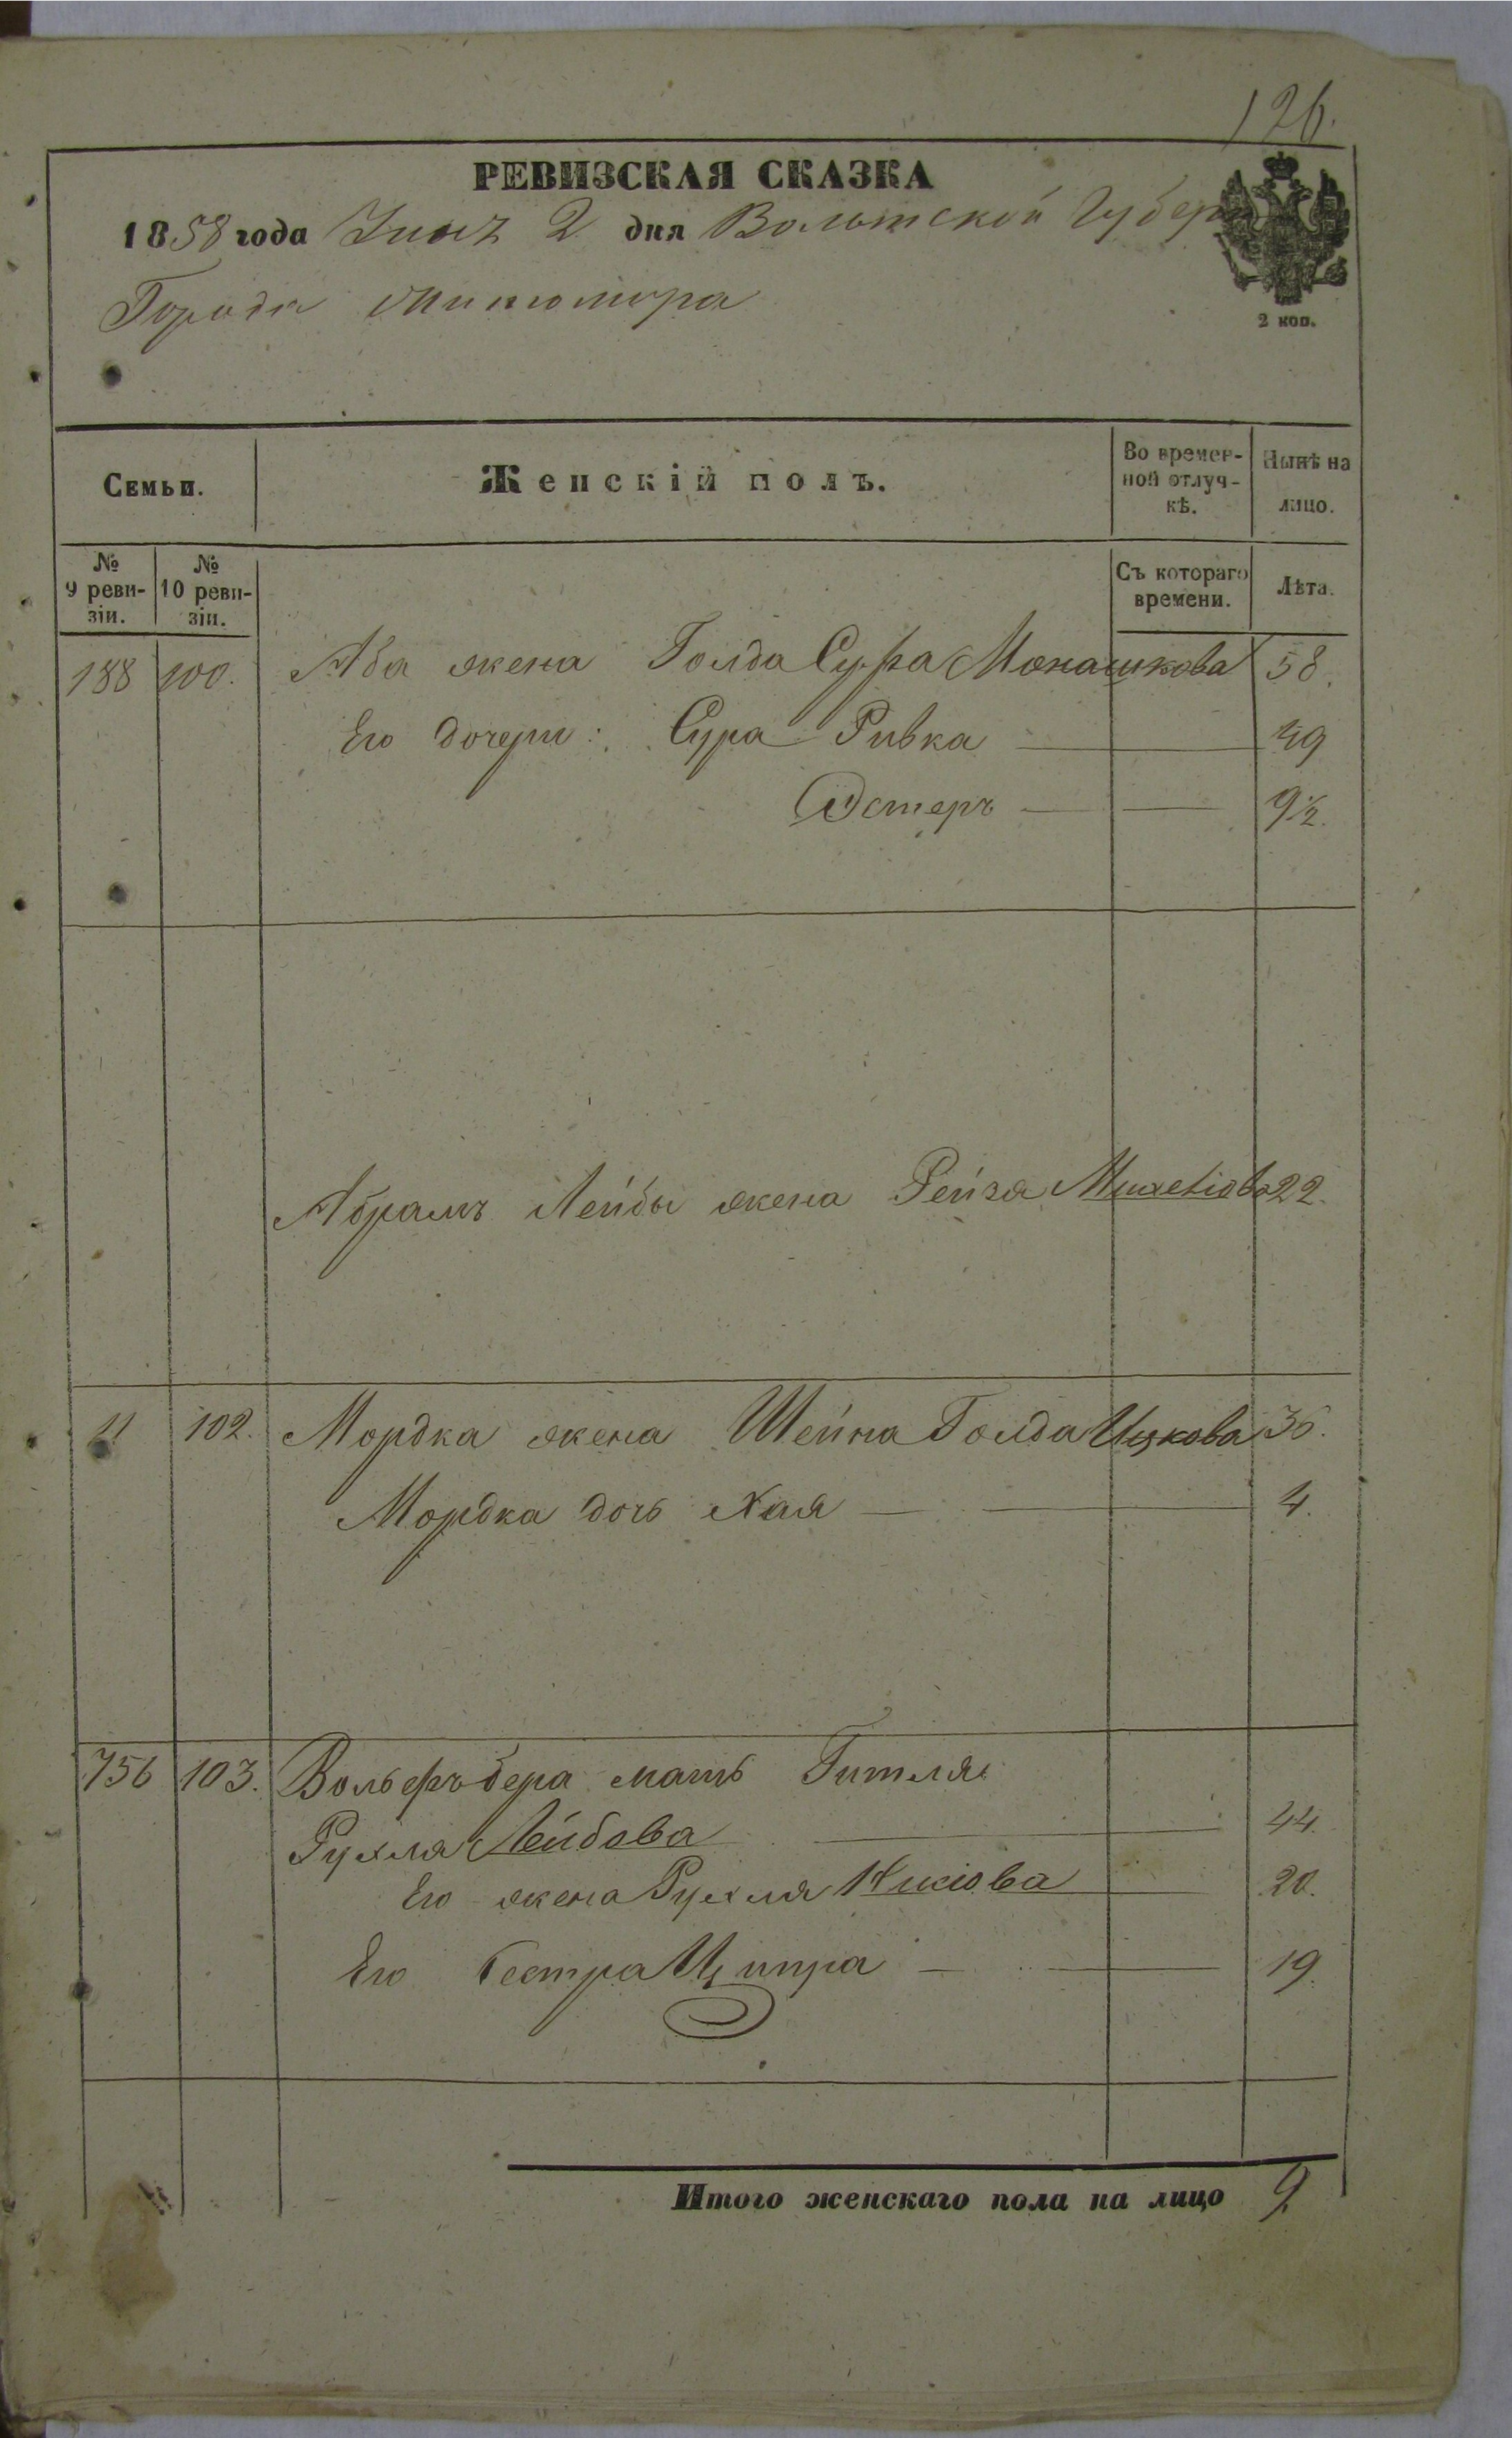 126.
РЕВИЗСКАЯ СКАЗКА
1858 года Іюнъ 2 дня Волынской Губерн
Города Житомира
2 коп.
Семьи.
Женскій полъ.
Во времен-
ной отлуч-
кѣ.
Нынѣ на
лицо.
№
9 реви-
зіи.
№
10 реви-
зіи.
Съ котораго
времени.
Лѣта.
188 100. Аба жена Голда Сура Монашкова 58.
Его дочери: Сура Ривка 19
Эстеръ 9½.
Абрамъ Лейбы жена Рейза 22.
11 102. Мордка жена Шейна Голда Ицкова 36.
Мордка дочь Хая 4.
756 103. Вольфъ бера мать Гитля
Рухля Лейбова 44.
Его жена Рухля 20.
Его Сестра Ципра 19.
Итого женскаго пола на лицо 9.